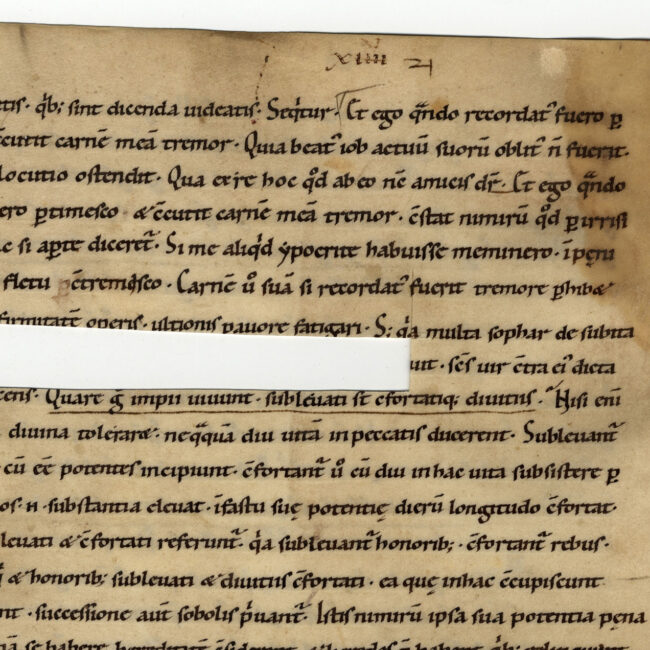 xiiii
etis. qb; sint dicenda uideatis. Seqtur. Et ego qndo recordat' fuero p
ccutit carnē meā tremor. Quia beat' iob actuū suorū oblit' n̄ fuerit.
locutio ostendit. Qua ex re hoc qd ab eo nc̄ amicis dr̄. Et ego qndo
ero ptimesco & c̄cutit carnē meā tremor. c̄stat nimirū qd p irrisi
e si apte diceret. Si me aliqd ypocrite habuisse meminero. ī penı
fletu c̄tremisco. Carnē ů suā si recordat' fuerit tremore phib&
firmitatē operis. ultionis pauore fatigari. S; qa multa sophar de subita
uit. scs̄ uir c̄tra ei' dicta
cens. Quare g impii uiuunt. subleuati st̄ c̄fortatiq; diuitiis. Nisi eni
diuina tolerar&. neqquā diu uitā in peccatis ducerent. Subleuant
cū eē potentes incipiunt. c̄fortant ů cū diu in hac uita subsistere p
os. n. substantia eleuat. ī fastu suę potentię dierū longitudo c̄fortat.
leuati & c̄fortati referunt. qa subleuant honorib;. c̄fortant rebus.
& honorib; subleuati & diuitiis c̄fortati. ea quę in hac c̄cupiscunt
nt. successione aut̄ sobolis p̄uant. Istis nimirū ipsa sua potentia pęna